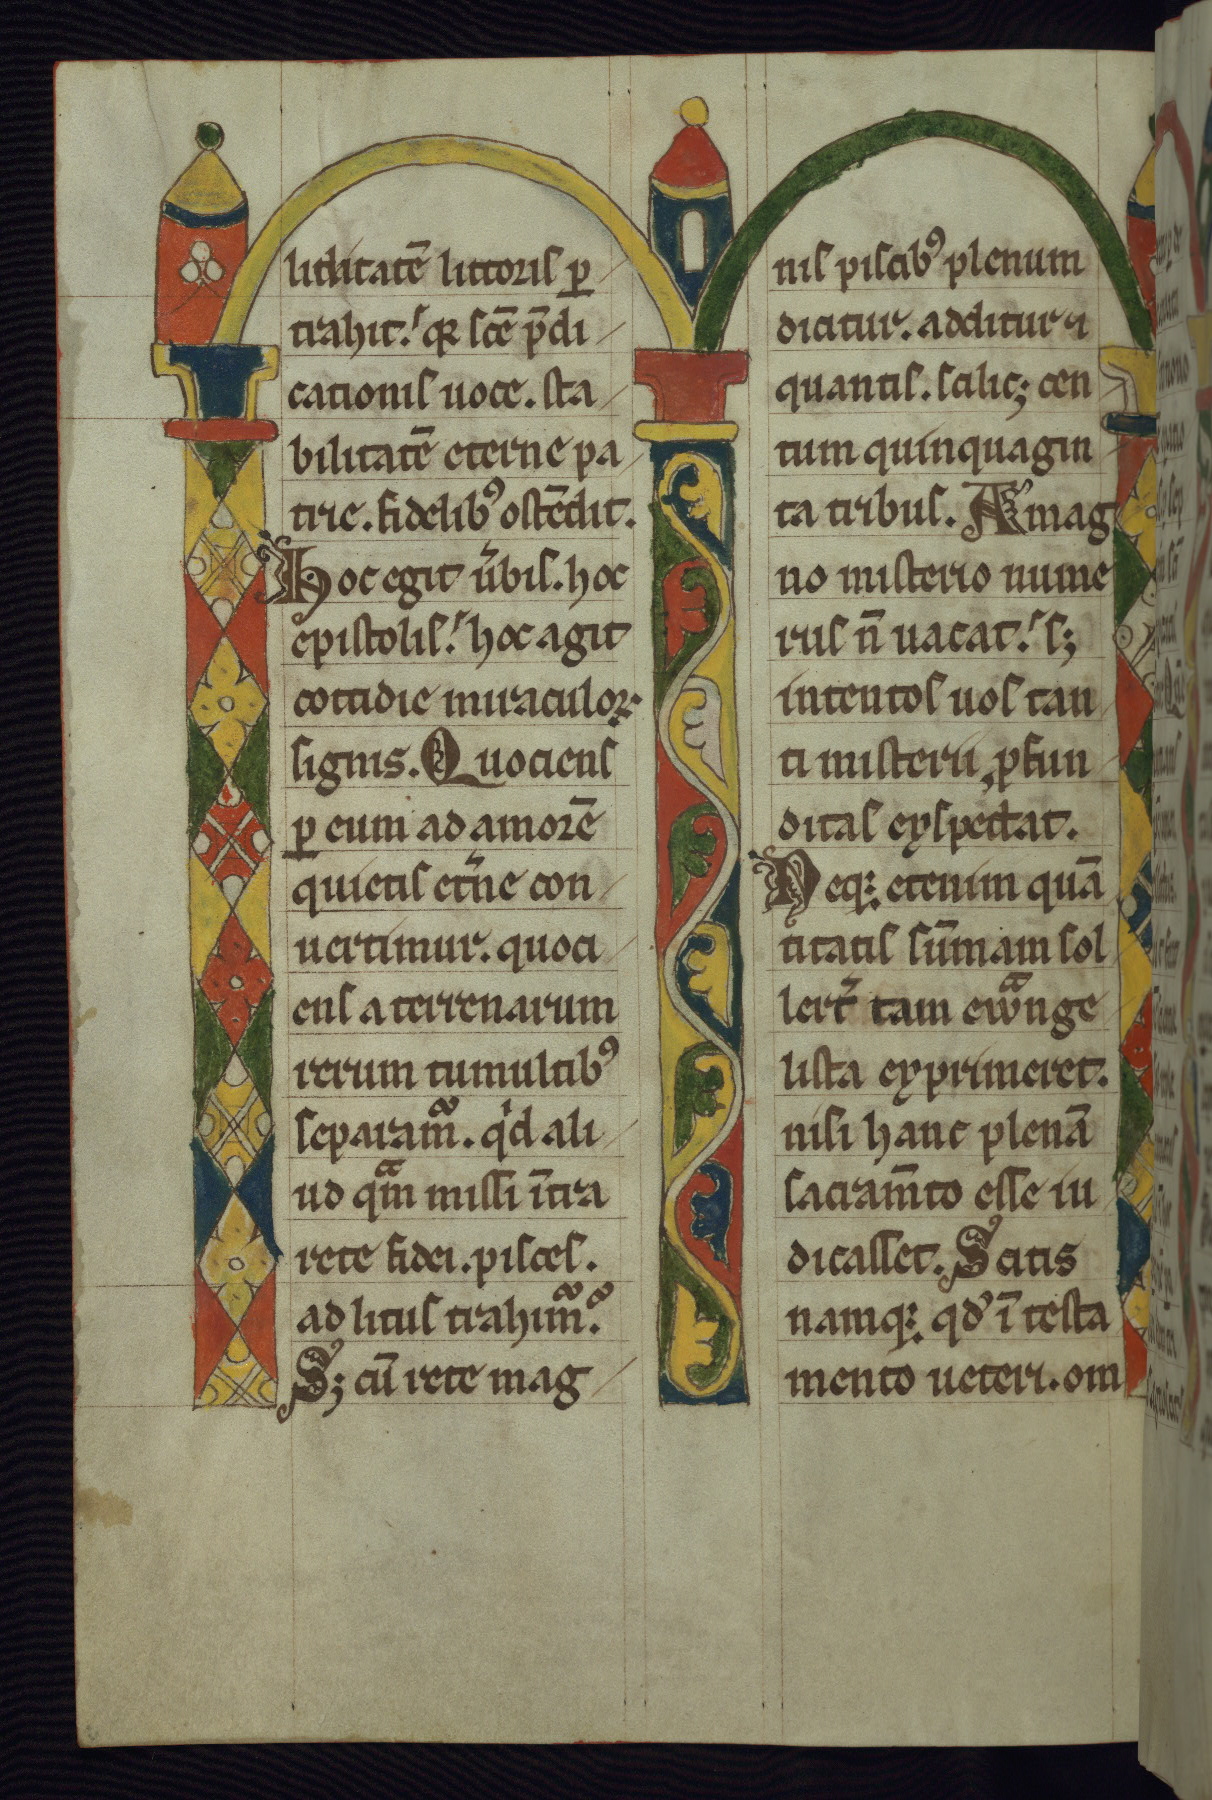 liditatē littoris p̲
trahit. qꝛ scē p̄di
cationis uoce. sta
bilitatē eterne pa
trie. fidelibꝰ ostēdit.
Hoc egit u̾bis. hoc
epistolis. hoc agit
cottidie miraculoꝝ
signis. Quociens
p̲ eum ad amorē
quietis et̾ne con
uertimur. quoci
ens a terrenarum
rerum tumultibꝰ
separam̃. qͥd ali
ud qᵃm missi ītra
rete fidei. pisces.
ad litus trahim̃ꝰ.
S; cū rete mag
nis piscibꝰ plenum
dicitur. additur ⁊
quantis. scilic; cen
tum quinquagin
ta tribus. A mag
no misterio nume
rus n̄ uacat. s;
intentos uos tan
ti misterii ꝓfun
ditas exspectat.
Neqꝫ etenim quā
titatis sūmam sol
lert̾ tam ewᵃnge
lista exprimeret.
nisi hanc plenā
sacram̄to esse iu
dicasset. Scitis
namqꝫ qd̾ ī testa
mento ueteri. om